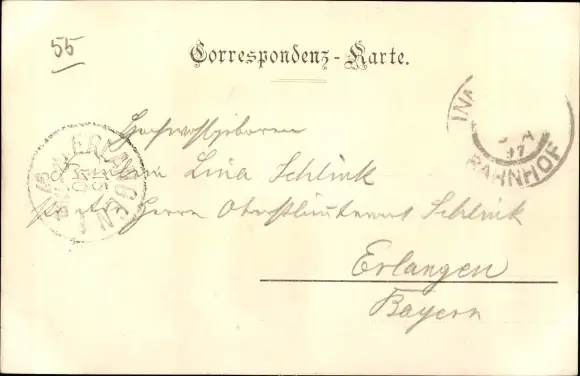 55
Correspondenz-Karte.
Hochwohlgeboren
Fräulein Lina Schlink
Herrn Oberstlieutenant Schlink
Erlangen
Bayern
ERLANGEN
BAHNHOF
97